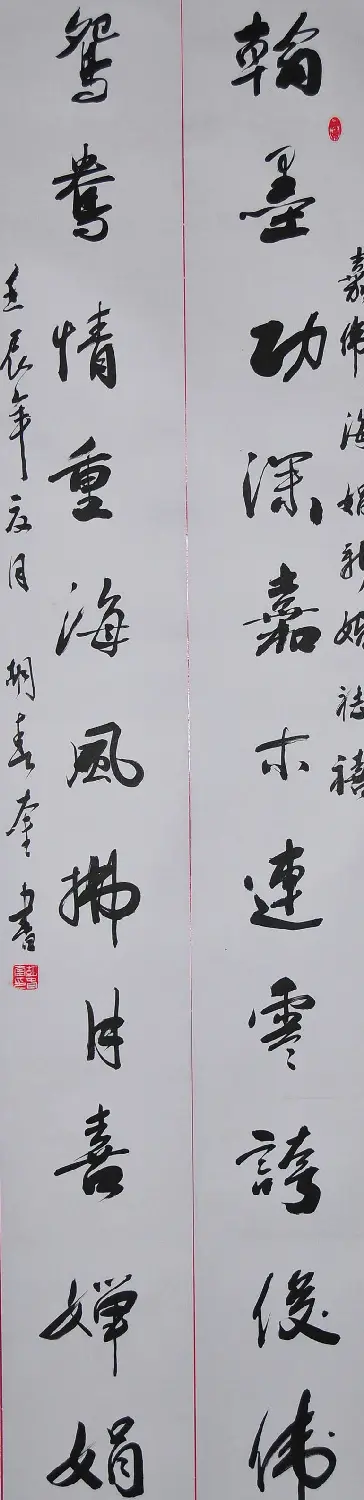 嘉偉海娟新婚誌禧
翰墨功深嘉木連雲誇俊偉
鴛鴦情重海風拂月喜嬋娟
壬辰年夏月 胡春奎書